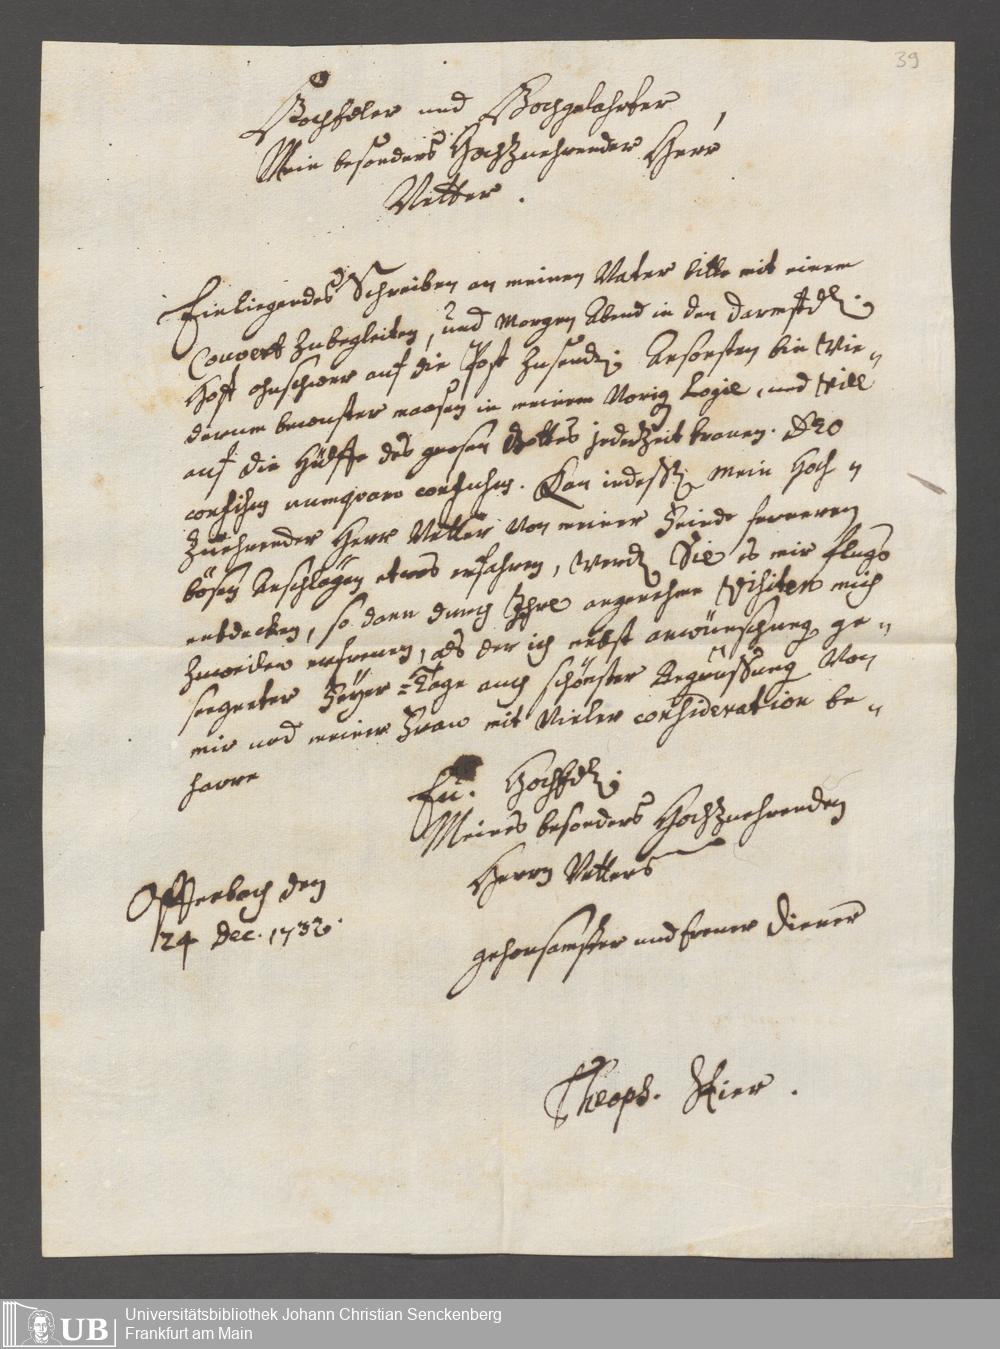 39
HochEdler und Hochgelahrter,
Mein besonders HochZuehrender Herr
Vetter.
Einliegendes Schreiben an meinen Vater bitte mit einem
Couvert Zubegleiten, und Morgen Abend in den Darmstdl.
Hoff ohnschwer auf die Post Zusenden. Ansonsten bin Wie=
derum bewuster maasen in meinem Vorig Logie, und Will
auf die Hülffe des grosen Gottes jederZeit trauen. DEO
confisus nunquam confusus. Kan indessen Mein Hoch=
Zuehrender Herr Vetter Von meiner Feinde ferneren
bösen Anschlägen etwas erfahren, Werden Sie es mir flugs
entdecken, so dann durch Ihre angenehme Visiten mich
Zuweilen erfreuen, als der ich nebst anwünschung ge=
seegneter Feyer=Tage auch schönster Begrüssung Von
mir und meiner Frau mit Vieler consideration be=
harre
Eu. HochEdl.
Meines besonders HochZuehrenden
Herrn Vetters
Offenbach den
24 Dec. 1732.
gehorsamster und treuer Diener
Theoph. Stier.
Universitätsbibliothek Johann Christian Senckenberg
Frankfurt am Main
UB